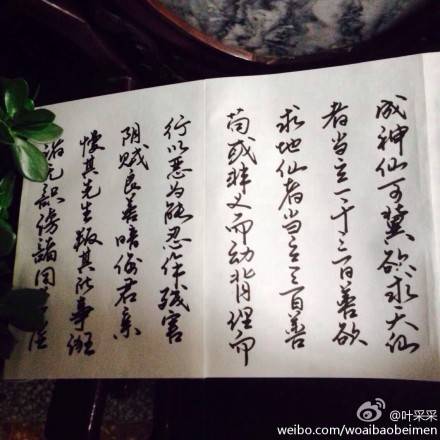 成神仙可冀欲求天仙
者当立一千三百善欲
求地仙者当立三百善
苟或非义而动背理而
行以恶为能忍作残害
阴贼良善暗侮君亲
慢其先生叛其所事诳
诸无识谤诸同学虚
@叶采采
weibo.com/woaibaobeimen